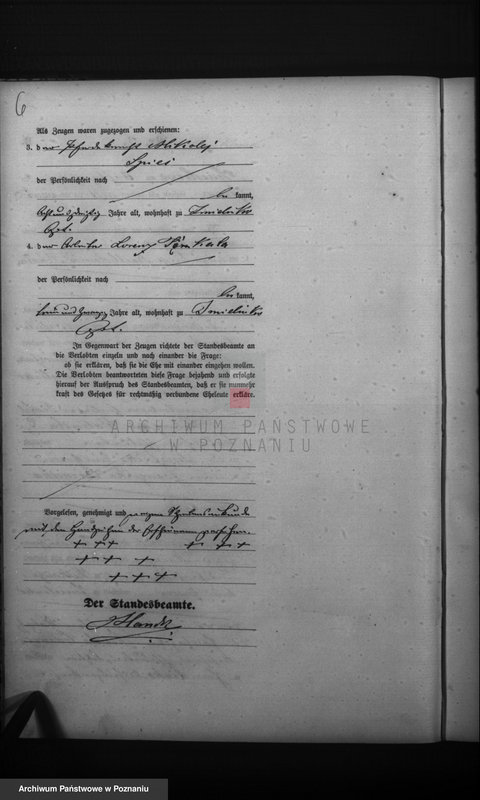 6
Als Zeugen waren zugezogen und erschienen:
3. der Pferdeknecht Mikolaj
Spies
der Persönlichkeit nach
be kannt,
acht und dreißig Jahre alt, wohnhaft zu
Gut.
4. der Arbeiter Lorenz
der Persönlichkeit nach
be kannt,
Jahre alt, wohnhaft zu
Gut.
In Gegenwart der Zeugen richtete der Standesbeamte an
die Verlobten einzeln und nach einander die Frage:
ob sie erklären, daß sie die Ehe mit einander eingehen wollen.
Die Verlobten beantworteten diese Frage bejahend und erfolgte
hierauf der Ausspruch des Standesbeamten, daß er sie nunmehr
kraft des Gesetzes für rechtmäßig verbundene Eheleute erkläre.
ARCHIWUM PAŃSTWOWE
W POZNANIU
Vorgelesen, genehmigt und wegen Schreibensunkunde
mit den Handzeichen der Erschienenen versehen.
+ + + + + +
+ + +
+ + +
Der Standesbeamte.
Archiwum Państwowe w Poznaniu